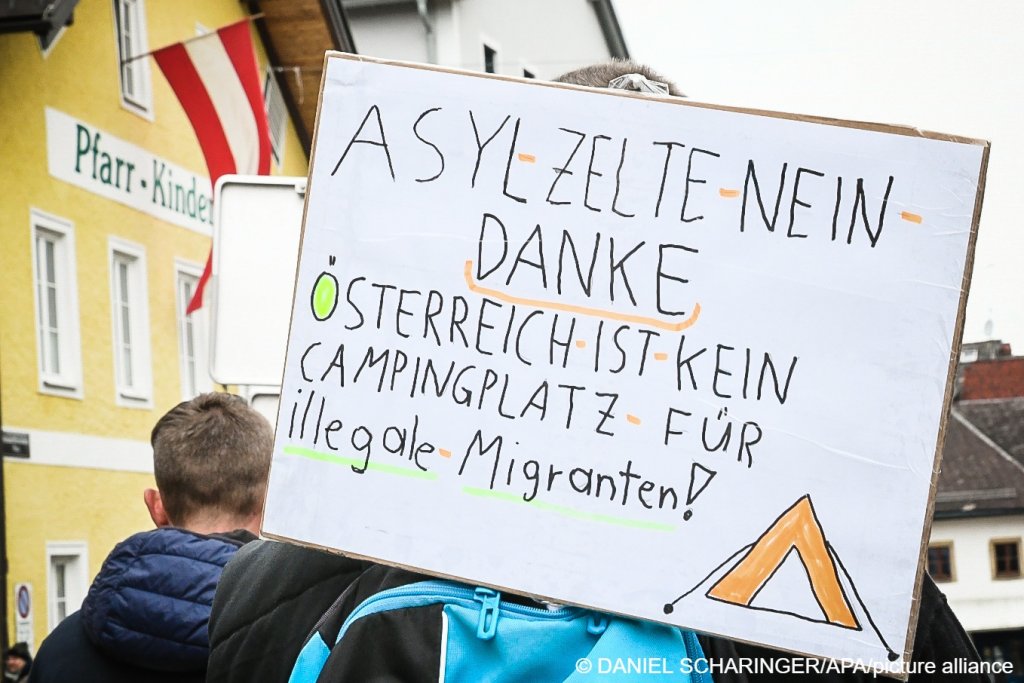 Pfarr - Kinder
ASYL-ZELTE-NEIN-
DANKE
ÖSTERREICH-IST-KEIN
CAMPINGPLATZ- FÜR
illegale-Migranten!
© DANIEL SCHARINGER/APA/picture alliance